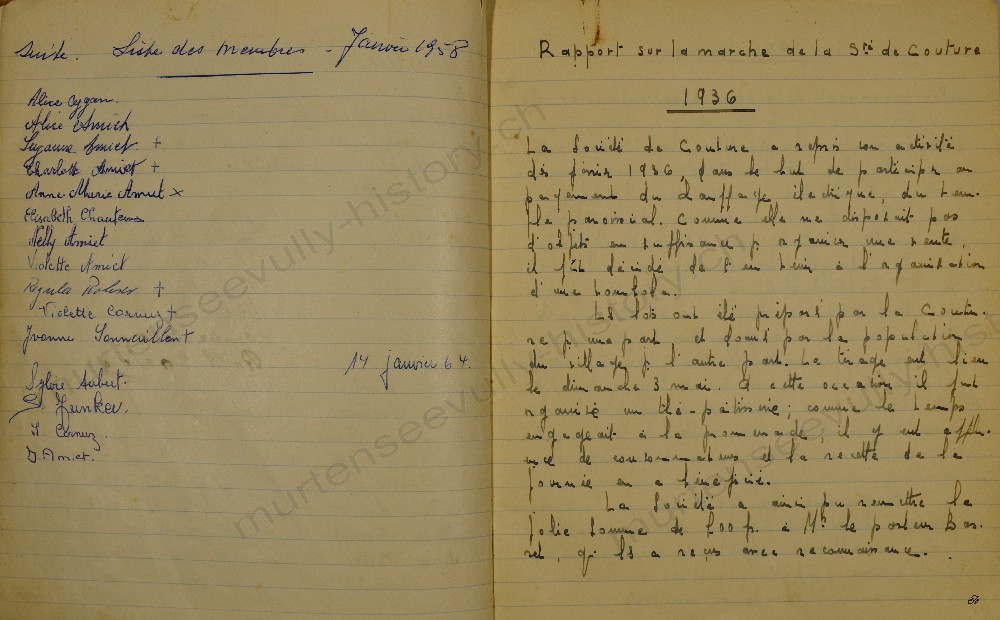 Suite. Liste des membres - Janvier 1958
Alice Cygan.
Alice Amiet
Suzanne Amiet +
Charlotte Amiet +
Anne-Marie Amiet x
Elisabeth Chautems
Nelly Amiet
Violette Amiet
Regula +
Violette Cornuz +
Yvonne +
14 janvier 64.
Sylvie Aubert.
Junker.
Cornuz.
D. Amiet.
Rapport sur la marche de la Sté de Couture
1936
La Société de Couture a repris son activité
dès février 1936, dans le but de participer au
payement du chauffage électrique, du tem-
ple paroissial. Comme elle ne disposait pas
d'objets en suffisance p. organiser une vente,
il fût décidé de s'en tenir à l'organisation
d'une tombola.
Les lots ont été préparés par la Coutu-
re p. une part et fournis par la population
du village p. l'autre part. Le tirage eut lieu
le dimanche 3 mai. A cette occasion il fut
organisé un thé-pâtisserie; comme le temps
engageait à la promenade, il y eut afflu-
ence de consommateurs et la recette de la
journée en a bénéficié.
La Société a ainsi pu remettre la
jolie somme de à Mr le pasteur
qui les a reçus avec reconnaissance.
murtenseevully-history.ch